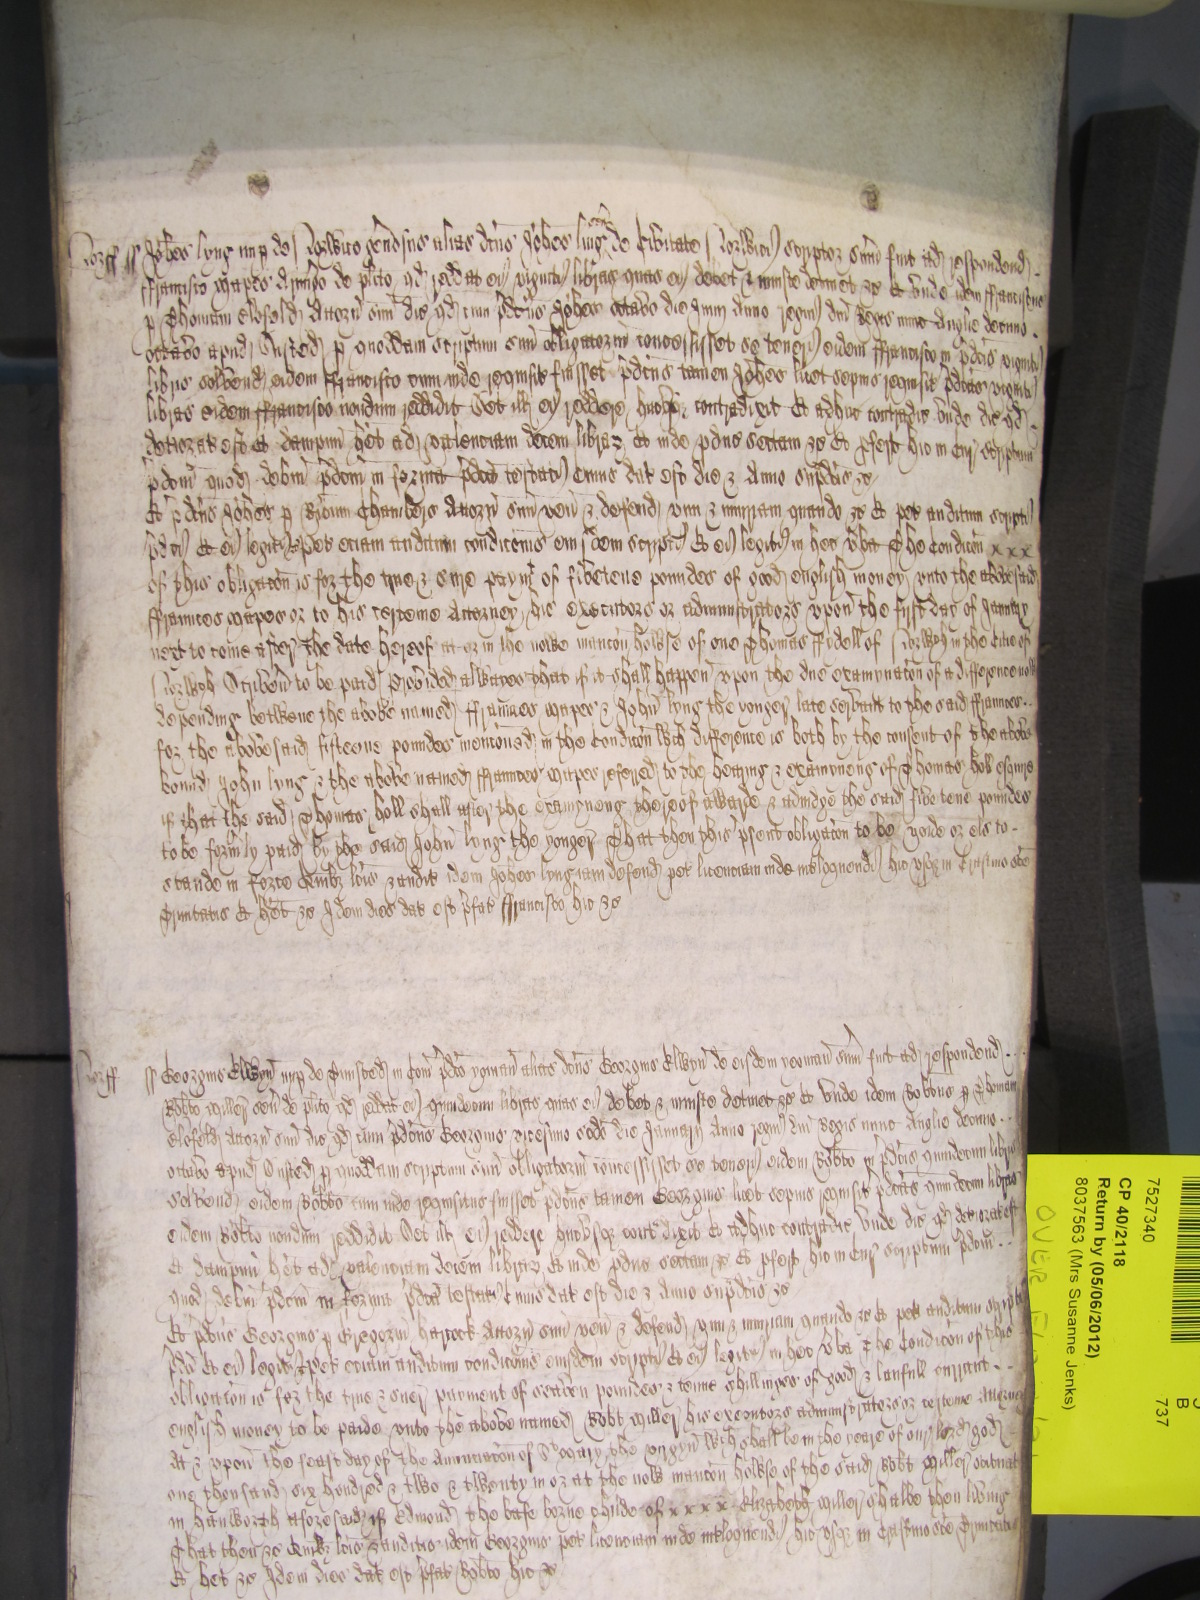 Norff ss Joh̃es lyng nup de Norwico gen̄osus alias dc̃us Joh̃es lyng de Civitate Norwici scriptor sum̃ fuit ad respondend
ffrancisco Mapes Armig̃o de pl̃ito qd̃ reddat ei viginti libras quas ei debet & iniuste detinet &c Et unde idem ffranciscus
p Thomam Elefeld Attorñ suũ dic̃ qd̃ cum p̃dc̃us Joh̃es octavo die Junii Anno regni dñi Regis nunc Anglie decimo
octavo apud Austed p quoddam scriptum suũ obligatoriũ concessisset se teneri eidem ffrancisco in p̃dc̃is viginti
libris solvend eidem ffrancisco cum inde requisit fuisset p̃dc̃us tamen Joh̃es licet sepius requisit p̃dc̃as viginti
libras eidem ffrancisco nondum reddidit Set ill ei reddere hucusq contradixit Et adhuc contradic̃ unde dic̃ qd̃
deteriorat est Et dampnũ h̃et ad valenciam decem librar Et inde p̃duc̃ sectam &c Et p̃fert hic in Cur̃ scriptum
p̃dc̃m quod debit̃ p̃dc̃m in forma p̃dc̃a testat̃ Cuius dat est die & Anno sup̃dc̃is &c
Et p̃dc̃us Joh̃es p Chambers Attorñ suũ veñ & defend vim & iniuriam quando &c Et pet̃ auditum scripti
p̃dc̃i Et ei legit̃ &c pet̃ eciam auditum condic̃onis eiusdem scripti Et ei legit̃ in hec v̄ba The Condic̃on x x x
of this obligac̃on is for the true & sure paymt of fivetene poundes of good english money unto the abovesaid
ffraunces Mapes or to his certeine Attorney his executors or administrators upon the first day of January
next to come after the date hereof at or in the nowe mansion howse of one Thomas ffydell of Norwch in the Citie of
Norwch Scriben̄ to be paid Provided alwaies that if it shall happen upon the due examynac̃on of a difference now
depending betwene the above named ffraunces Mapes & John lyng the yonger late servant to the said ffraunces
for the abovesaid fifteene poundes menc̃oned in the Condic̃on Wch difference is both by the consent of the above
bound John lyng & the above named ffraunces Mapes referred to the hearing & examyneng of Thomas holl esquire
if that the said Thomas holl shall after the examyneng thereof awarde & adiudge the said fivetene poundes
to be formly paid by the said John lyng the yonger That then this p̃sent obligac̃on to be voide or els to
stande in force Quibz lc̃is & audit̃ idem Joh̃es lyng iam defend pet̃ licenciam inde int̃loquendi hic usq in Crastino sc̃e
Trinitatis Et h̃et &c Idem dies dat est p̃fat̃ ffrancisco hic &c
Norff ss Georgius Elwyn nup de in Com̃ p̃dc̃o yoman alias dc̃us Georgius Elwyn de eisdem yoman sum̃ fuit ad respondend
Rob̃to Miller señ de pl̃ito qd̃ reddat ei quindecim libras quas ei debet & iniuste detinet &c Et unde idem Rob̃tus p Thomam
Elefeld Attorñ suũ dic̃ qd̃ cum p̃dc̃us Georgius vicesimo sc̃do die Januarii Anno regni dñi Regis nunc Anglie decimo
octavo apud Austed p quoddam scriptum suũ obligatoriũ concessisset se teneri eidem Rob̃to in p̃dc̃is quindecim libris
solvend eidem Rob̃to cum inde requisitus fuisset p̃dc̃us tamen Georgius licet sepius requisit p̃dc̃as quindecim libras
eidem Rob̃to nondum reddidit Set ill ei reddere hucusq contradixit Et adhuc contradic̃ unde dic̃ qd̃ deteriorat est
Et dampnũ h̃et ad valenciam decem librar Et inde p̃duc̃ sectam &c Et p̃fert hic in Cur̃ scriptum p̃dc̃m
quod debit̃ p̃dc̃m in forma p̃dc̃a testat̃ Cuius dat est die & Anno sup̃dc̃is &c
Et p̃dc̃us Georgius p Gregoriũ harcock Attorñ suũ veñ & defend vim & iniuriam quando &c Et pet̃ auditum scripti
p̃dc̃i Et ei legit̃ &c pet̃ eciam auditum condic̃onis eiusdem scripti Et ei legit̃ in hec v̄ba The Condic̃on of this
obligac̃on is for the true & suer payment of seaven poundes & tenne shillinges of good & lawfull currant
english money to be paide unto the above named Robt Miller his executors administrators or certeine Attorney
At & upon the feast day of the Annuntiac̃on of St Mary the virgyn wch shall be in the yeare of our lord god
one thousand six hundred & two & twenty in or at the now mansion howse of the said Robt Miller scituat
in hanworth aforesaid if Edmond the base borne childe of x x x x Elizabeth Miller shalbe then living
That then &c Quibz lc̃is & auditis idem Georgius pet̃ licenciam inde int̃loquendi hic usq in Crastino sc̃e Trinitatis
Et h̃et &c Idem dies dat est p̃fat̃ Rob̃to hic &c
7527340
CP 40/2118
Return by (05/06/2012)
8037563 (Mrs Susanne Jenks)
B
737
OVER